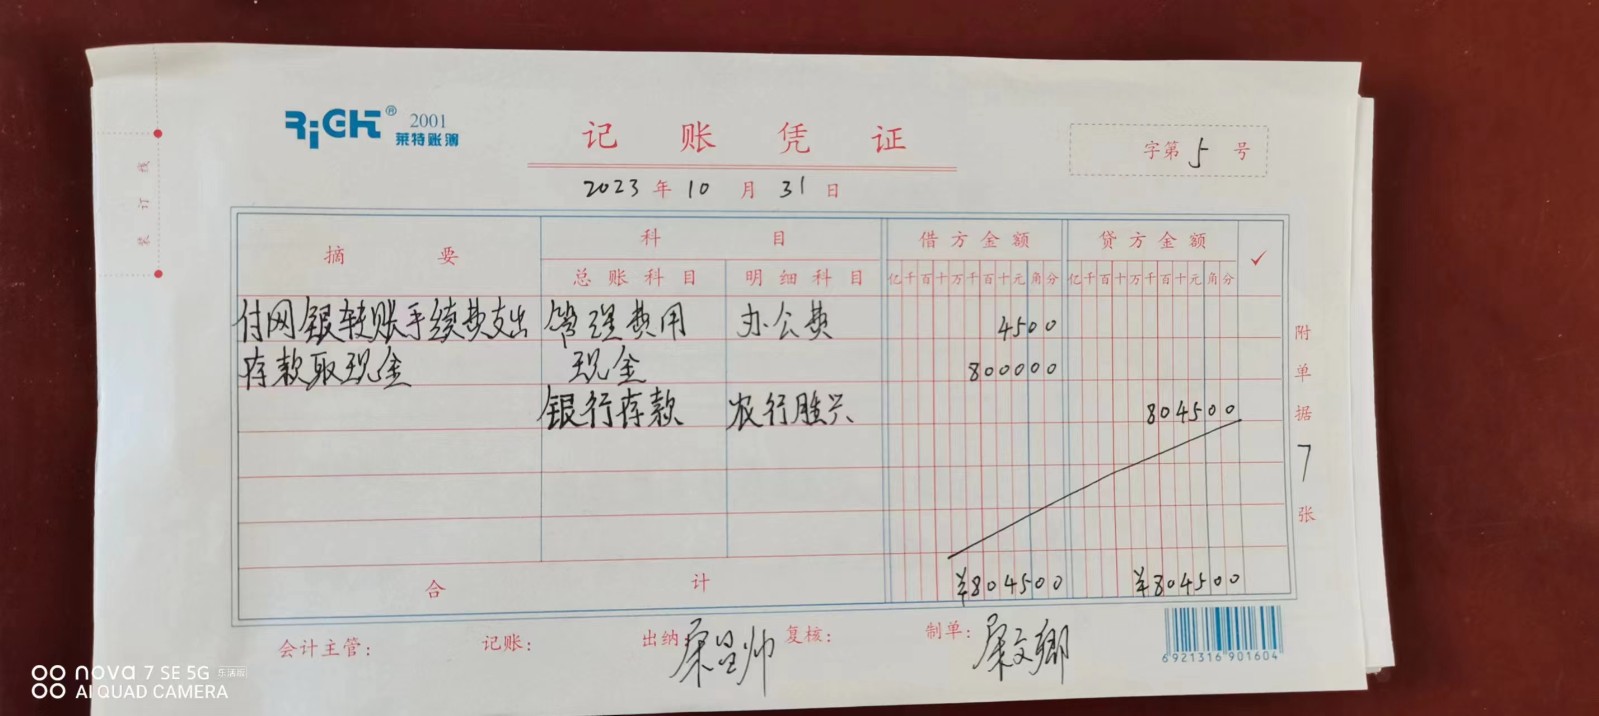 RiGHT® 2001
莱特账簿
记账凭证
字第5号
2023年10月31日
装订线
摘要 科目 借方金额 贷方金额 ✓
总账科目 明细科目 亿千百十万千百十元角分 亿千百十万千百十元角分
付网银转账手续费支出 管理费用 办公费 4500
存款取现金 现金 800000
银行存款 农行胜兴 804500
附单据7张
合计 ¥804500 ¥804500
会计主管: 记账: 出纳 复核: 制单:
6921316901604
nova 7 SE 5G 乐活版
AI QUAD CAMERA